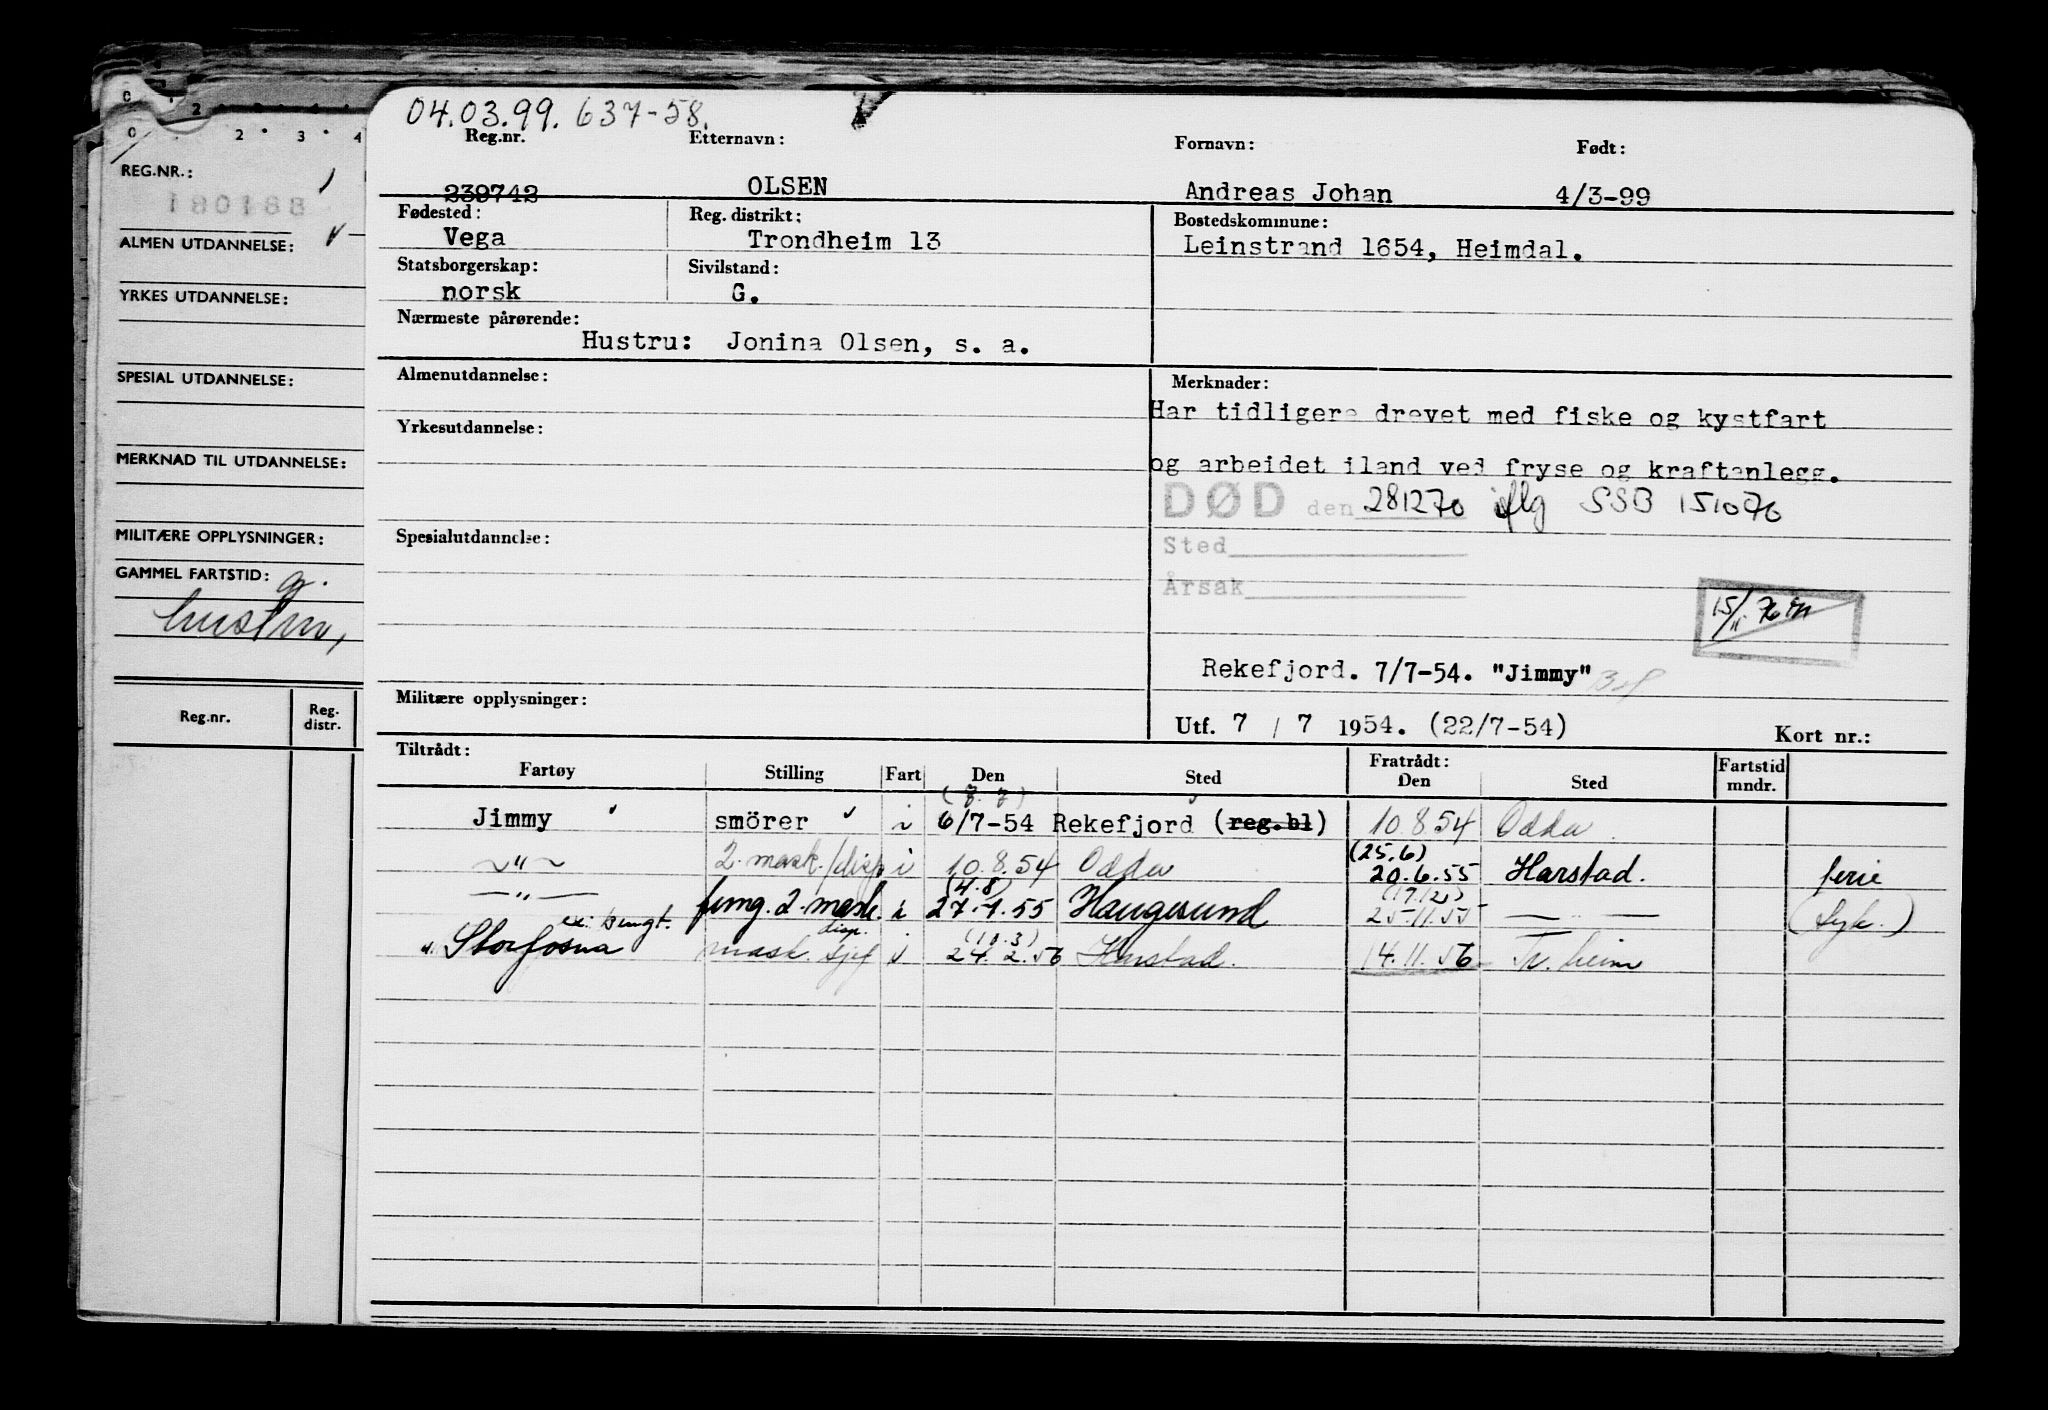 0 2
0 2 3 4
REG.NR.:
180188
ALMEN UTDANNELSE:
YRKES UTDANNELSE:
SPESIAL UTDANNELSE:
MERKNAD TIL UTDANNELSE:
MILITÆRE OPPLYSNINGER:
GAMMEL FARTSTID: g.
hustru,
Reg.nr. Reg. distr.
04.03.99. 637-58.
Reg.nr. Etternavn: Fornavn: Født:
239742 OLSEN Andreas Johan 4/3-99
Fødested: Reg. distrikt: Bostedskommune:
Vega Trondheim 13 Leinstrand 1654, Heimdal.
Statsborgerskap: Sivilstand:
norsk G.
Nærmeste pårørende:
Hustru: Jonina Olsen, s. a.
Almenutdannelse: Merknader:
Har tidligere drevet med fiske og kystfart
Yrkesutdannelse:
og arbeidet iland ved fryse og kraftanlegg.
DØD den 281270 iflg SSB 151076
Spesialutdannelse: Sted
Årsak
15/11 76
Rekefjord. 7/7-54. "Jimmy"
Militære opplysninger:
Utf. 7 / 7 1954. (22/7-54) Kort nr.:
Tiltrådt: Fratrådt: Fartstid
Fartøy Stilling Fart Den Sted Den Sted mndr.
(7.7)
Jimmy smörer i 6/7-54 Rekefjord (reg.bl) 10.8.54 Odda
(25.6)
—"— 2. mask./disp i 10.8.54 Odda 20.6.55 Harstad. ferie
(4.8) (17.12)
—"— fung. 2. mask. i 27.7.55 Haugesund 25.11.55 —"— (syk.)
ex: Bengt. disp. (10.3)
Storfosna mask. sjef i 24.2.56 Harstad. 14.11.56 Tr.heim